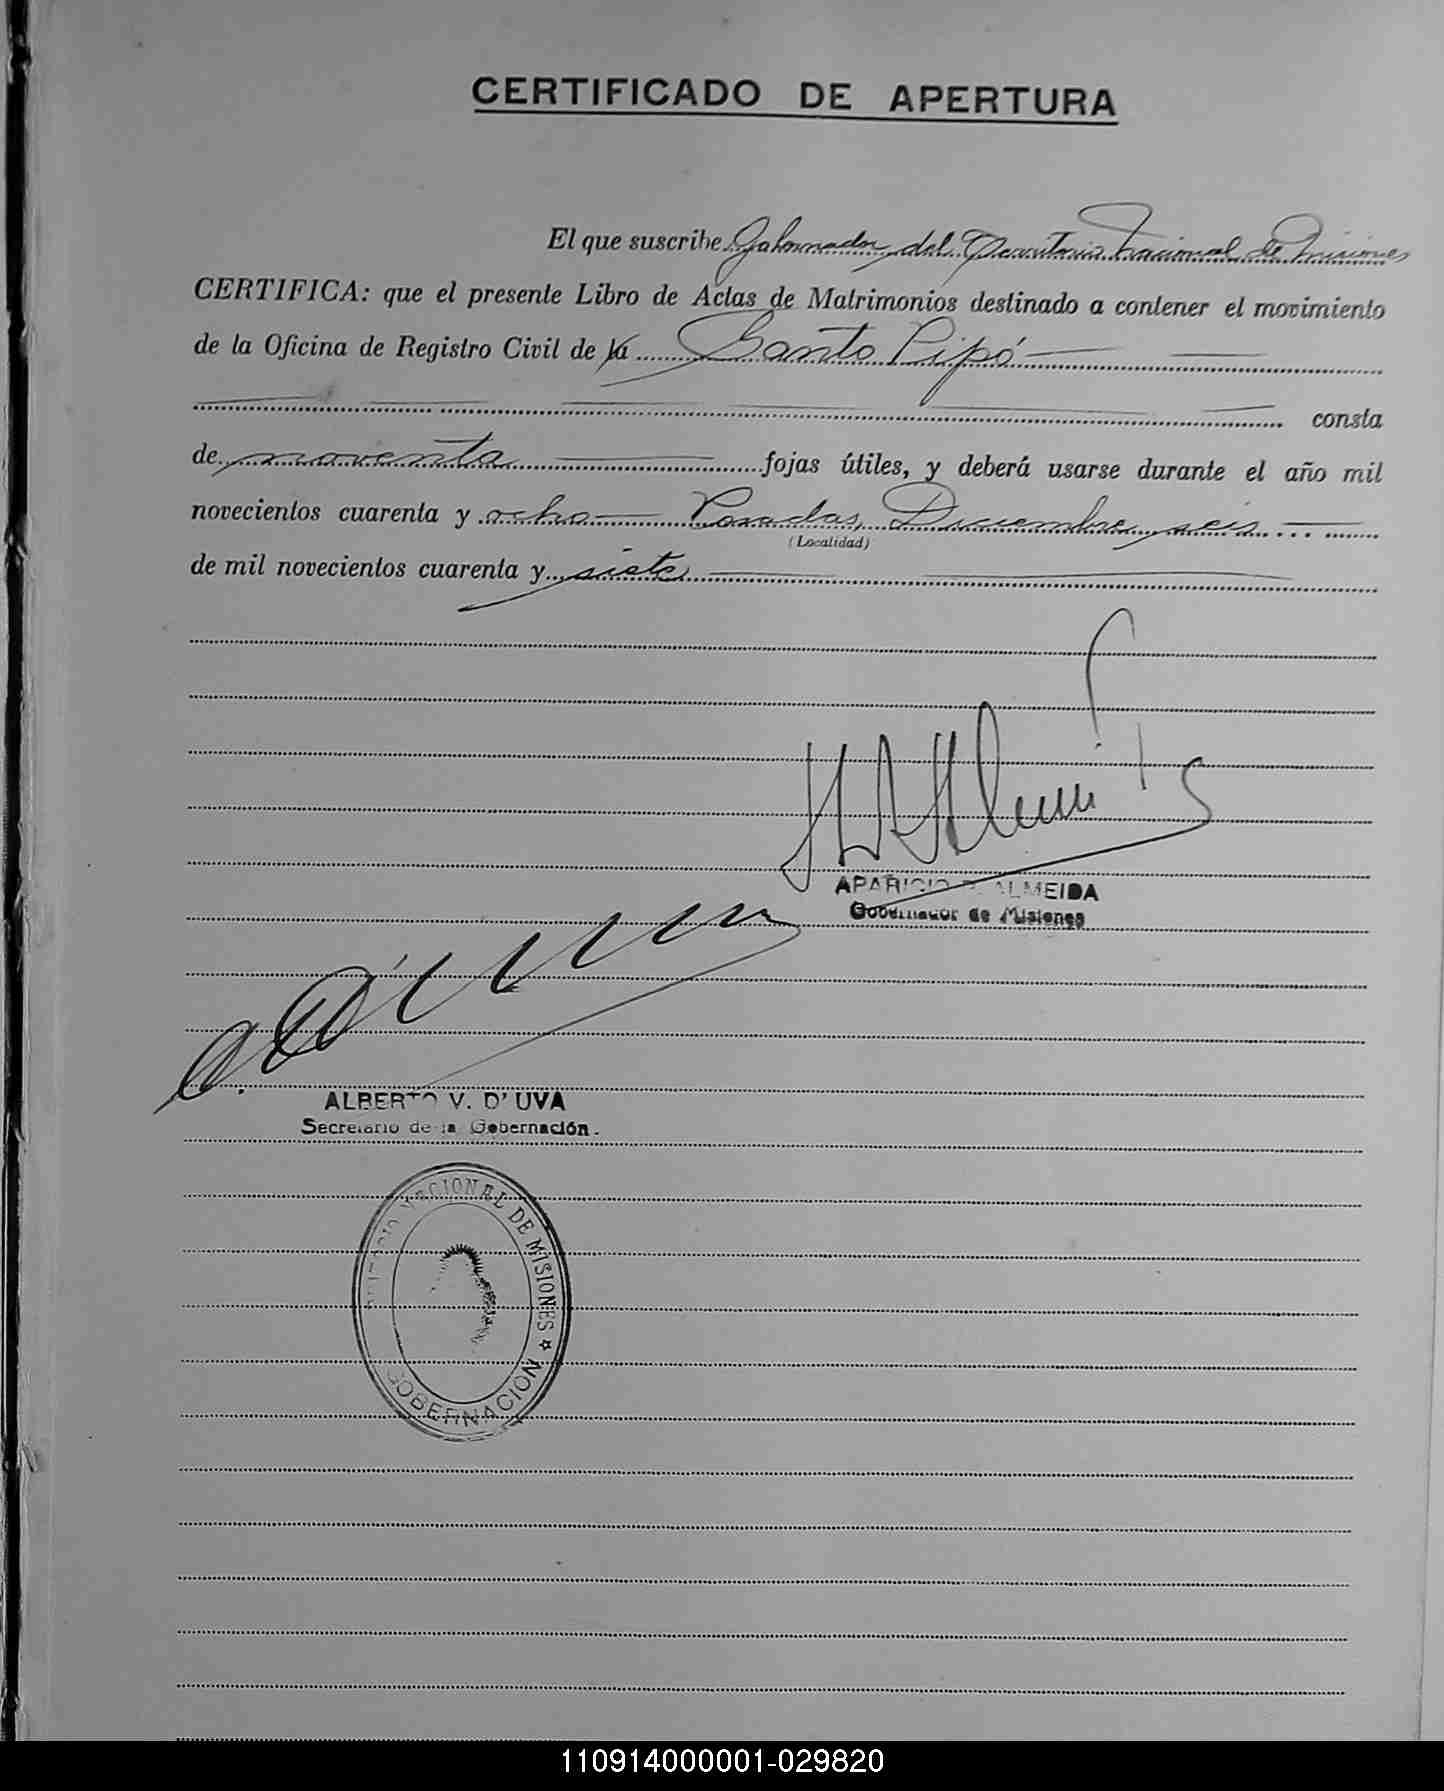 CERTIFICADO DE APERTURA
El que suscribe Gobernador del Territorio Nacional de Misiones
CERTIFICA: que el presente Libro de Actas de Matrimonios destinado a contener el movimiento
de la Oficina de Registro Civil de la Santo Pipó
consta
de noventa fojas útiles, y deberá usarse durante el año mil
novecientos cuarenta y ocho Posadas, Diciembre seis
(Localidad)
de mil novecientos cuarenta y siete
APARICIO ALMEIDA
Gobernador de Misiones
ALBERTO V. D'UVA
Secretario de la Gobernación.
TERRITORIO NACIONAL DE MISIONES
GOBERNACIÓN
110914000001-029820